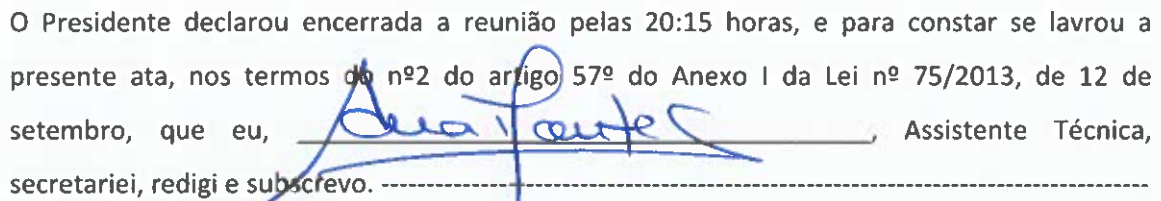 O Presidente declarou encerrada a reunião pelas 20:15 horas, e para constar se lavrou a
presente ata, nos termos do nº2 do artigo 57º do Anexo I da Lei nº 75/2013, de 12 de
setembro, que eu, Ana , Assistente Técnica,
secretariei, redigi e subscrevo. ---------------------------------------------------------------------------------------------